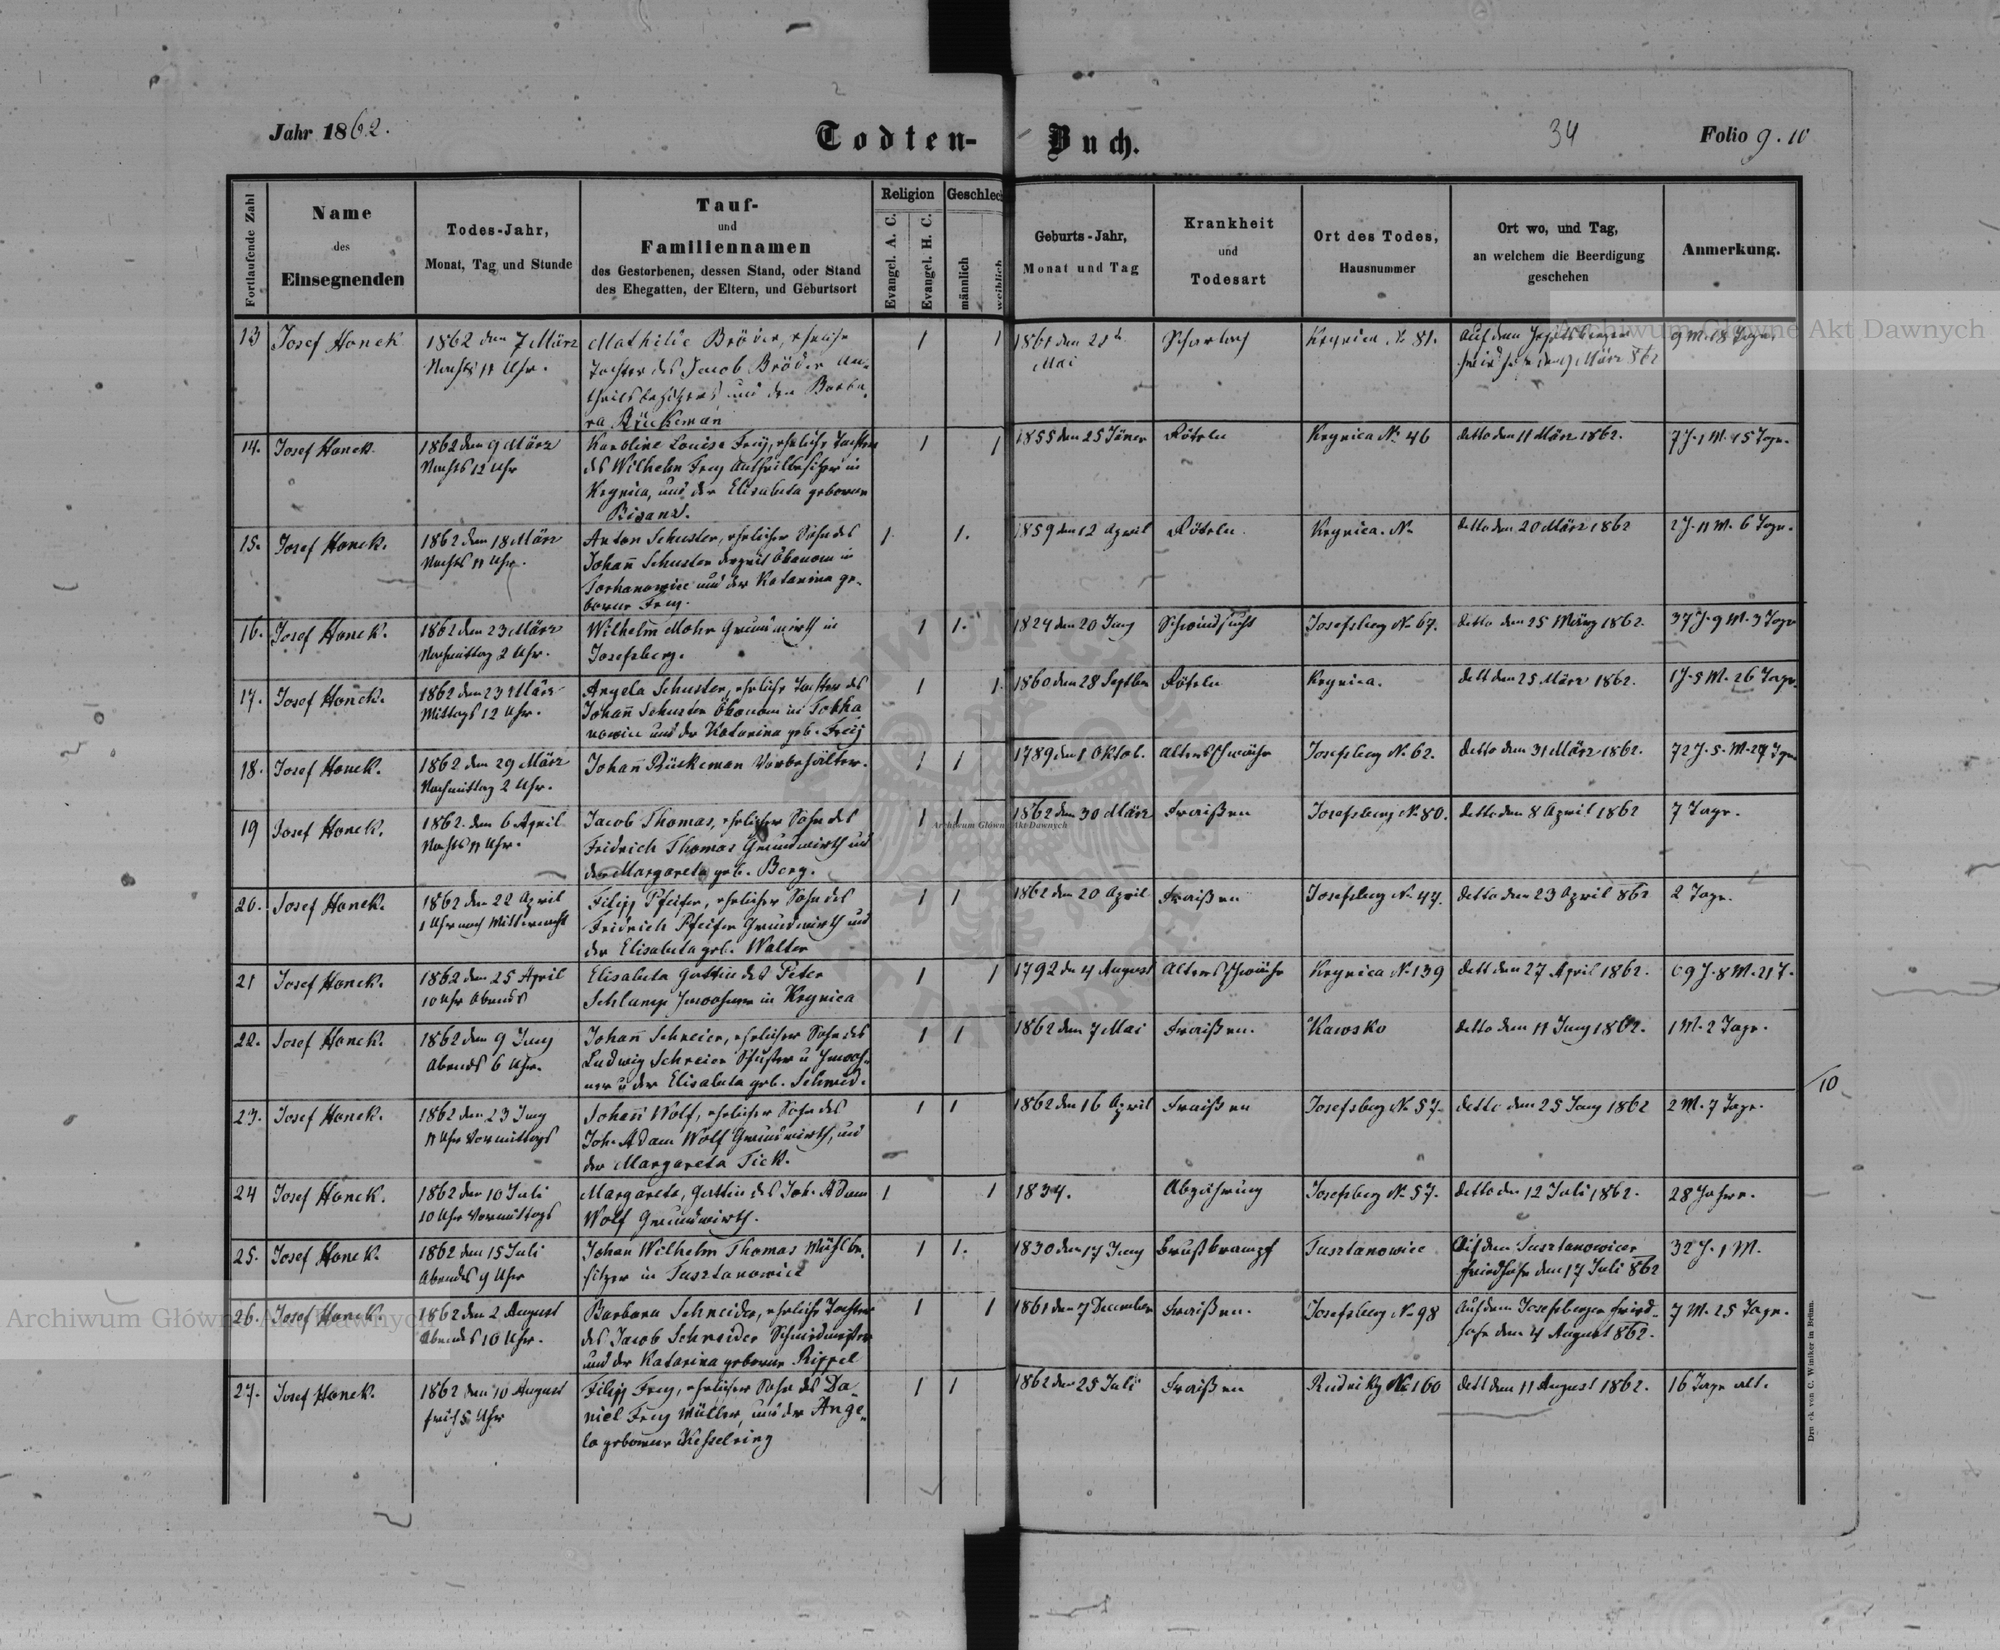 Jahr 1862.
Todten-Buch.
34
Folio 9. 10
Fortlaufende Zahl
Name
des
Einsegnenden
Todes-Jahr,
Monat, Tag und Stunde
Tauf-
und
Familiennamen
des Gestorbenen, dessen Stand, oder Stand
des Ehegatten, der Eltern, und Geburtsort
Religion
Evangel. A. C.
Evangel. H. C.
Geschlech
männlich
weiblich
Geburts-Jahr,
Monat und Tag
Krankheit
und
Todesart
Ort des Todes,
Hausnummer
Ort wo, und Tag,
an welchem die Beerdigung
geschehen
Anmerkung.
13
Josef Honek
1862 den 7 März
Nachts 11 Uhr.
Mathilde Bröder, ehelich
Tochter des Jacob Bröder An-
theilsbesitzers und der Barba-
ra Rückeman
1
1
1861 den 21
Mai
Scharlach
Krynica N. 81.
Auf dem Josefsberger
Friedhofe den 9 März 862
9 M. 18 Tage.
14.
Josef Honek.
1862 den 9 März
Nachts 12 Uhr
Karoline Louise Frey, eheliche Tochter
des Wilhelm Frey Antheilbesitzer in
Krynica, und der Elisabeta geborne
Bisanz.
1
1
1855 den 25 Jäner
Röteln
Krynica No 46
detto den 11 März 1862.
7 J. 1 M. 15 Tage.
15.
Josef Honek.
1862 den 18 März
Nachts 11 Uhr.
Anton Schuster, ehelicher Sohn des
Johañ Schuster derzeit Ökonom in
Torhanowice und der Katarina ge-
borne Frey.
1
1.
1859 den 12 April
Röteln
Krynica. No
detto den 20 März 1862
2 J. 11 M. 6 Tage.
16.
Josef Honek.
1862 den 23 März
Nachmittag 2 Uhr.
Wilhelm Mohr Grundwirth in
Josefsberg.
1
1.
1824 den 20 Juny
Schwindsucht
Josefsberg No 67.
detto den 25 März 1862.
37 J. 9 M. 3 Tage
17.
Josef Honek.
1862 den 23 März
Mittags 12 Uhr.
Angela Schuster, eheliche Tochter des
Johañ Schuster Ökonom in Torha
nowice und der Katarina geb. Freÿ
1
1.
1860 den 28 Septber
Röteln
Krynica.
dett den 25 März 1862.
1 J. 5 M. 26 Tage.
18.
Josef Honek.
1862 den 29 März
Nachmittag 2 Uhr.
Johañ Rückeman Vorbehälter.
1
1
1789 den 1 Oktob.
Altersschwäche
Josefsberg No 62.
detto den 31 März 1862.
72 J. 5. M. 29 Tge
19
Josef Honek.
1862. den 6 April
Nachts 11 Uhr.
Jacob Thomas, ehelicher Sohn des
Fridrich Thomas Grundwirth und
der Margareta geb. Berg.
1
1
1862 den 30 März
Fraißen
Josefsberg No 80.
detto den 8 April 1862
7 Tage.
20.
Josef Honek.
1862 den 22 April
1 Uhr nach Mitternacht
Filipp Pfeifer, ehelicher Sohn des
Fridrich Pfeifer Grundwirth und
der Elisabeta geb. Walter
1
1
1862 den 20 April
Fraißen
Josefsberg No. 47.
detto den 23 April 862
2 Tage.
21
Josef Honek.
1862 den 25 April
10 Uhr Abends
Elisabeta Gattin des Peter
Schlamp Inwohner in Krynica
1
1
1792 den 4 August
Altersschwäche
Krynica No 139
dett den 27 April 1862.
69 J. 8 M. 21 T.
22.
Josef Honek.
1862 den 9 Juny
Abends 6 Uhr.
Johañ Schreier, ehelicher Sohn des
Ludwig Schreier Schuster u Inwoh-
ner u der Elisabeta geb. Schmid.
1
1
1862 den 7 Mai
Fraißen.
Kawsko
detto den 11 Juny 1862.
1 M. 2 Tage.
23.
Josef Honek.
1862 den 23 Juny
11 Uhr Vormittags
Johañ Wolf, ehelicher Sohn des
Joh. Adam Wolf Grundwirth, und
der Margareta Tick.
1
1
1862 den 16 April
Fraißen
Josefsberg No 57.
detto den 25 Juny 1862
2 M. 7 Tage.
10
24
Josef Honek.
1862 den 10 Juli
10 Uhr Vormittags
Margareta, Gattin des Joh. Adam
Wolf Grundwirth.
1
1
1834.
Abzehrung
Josefsberg No 57.
detto den 12 Juli 1862.
28 Jahre.
25.
Josef Honek.
1862 den 15 Juli
Abends 9 Uhr
Johan Wilhelm Thomas Mühlbe-
sitzer in Tusztanowice
1
1.
1830 den 17 Juny
Brustkrampf
Tusztanowice
Auf dem Tusztanowicer
Friedhofe den 17 Juli 862
32 J. 1 M.
26.
Josef Honek.
1862 den 2 August
Abends 10 Uhr.
Barbara Schneider, eheliche Tochter
des Jacob Schneider Schmidmeister
und der Katarina geborne Rippel
1
1
1861 den 7 December
Fraißen.
Josefsberg No 98
Auf dem Josefsberger Fried-
hofe den 4 August 862.
7 M. 25 Tage.
27.
Josef Honek.
1862 den 10 August
früh 5 Uhr
Filipp Frey, ehelicher Sohn des Da-
niel Frey Müller, und der Ange-
la geborne Kesselring
1
1
1862 den 25 Juli
Fraißen
Rudniky No 160
dett den 11 August 1862.
16 Tage alt.
Druck von C. Winiker in Brünn.
Archiwum Główne Akt Dawnych
Archiwum Główne Akt Dawnych
Archiwum Główne Akt Dawnych